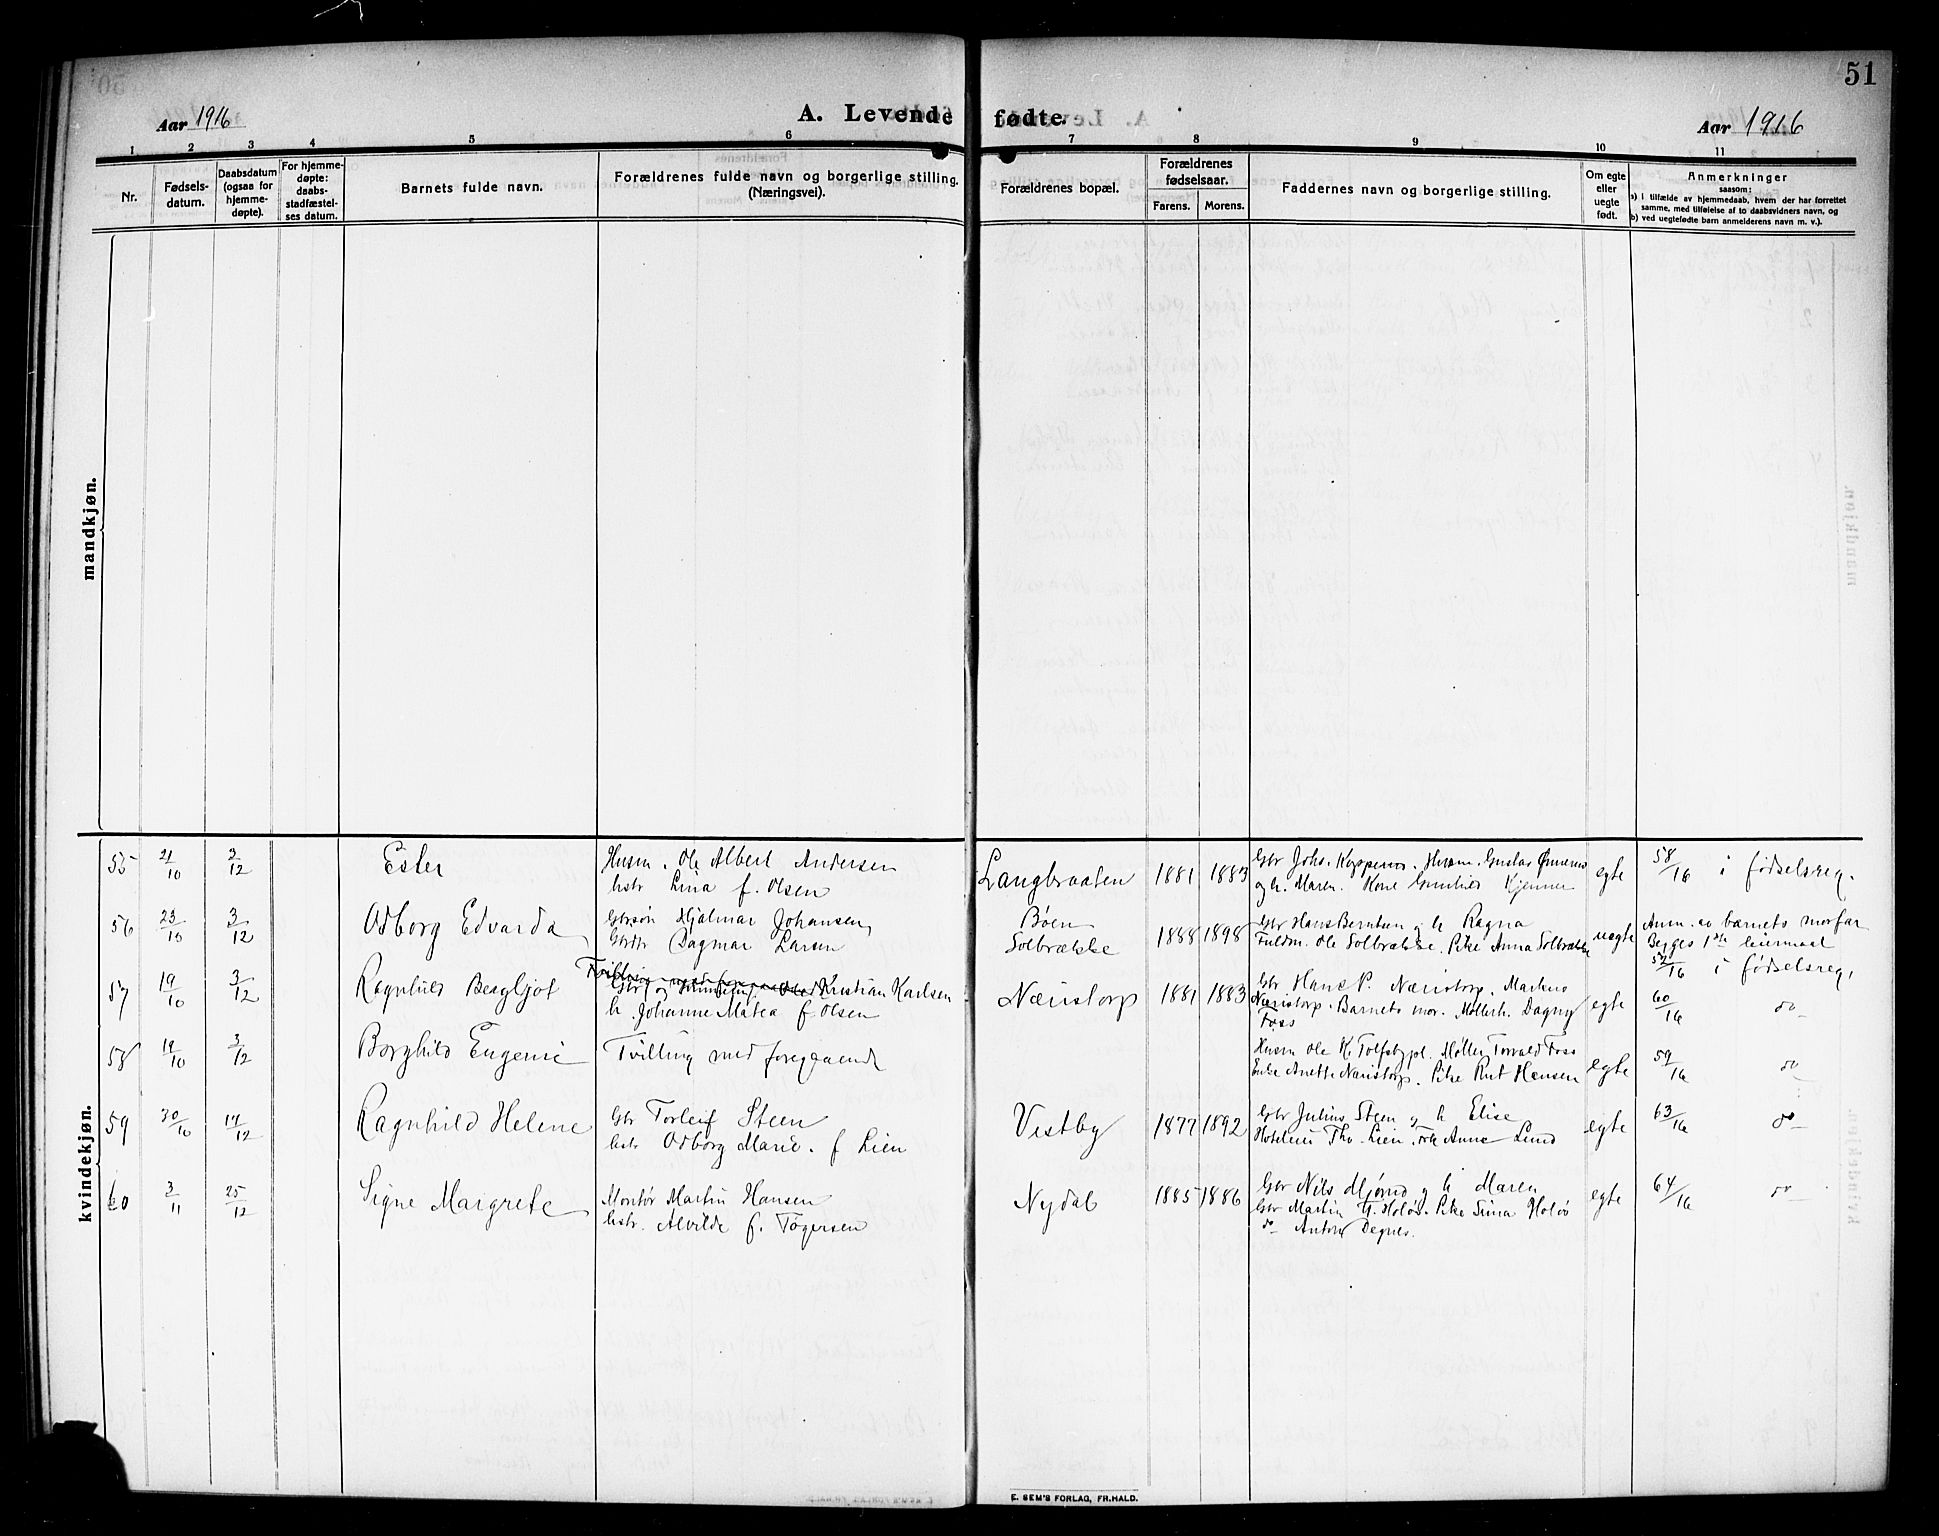 51
Aar 1916
A. Levende fødte.
Aar 1916
1 2 3 4 5 6 7 8 9 10 11
Nr.
Fødsels-
datum.
Daabsdatum
(ogsaa for
hjemme-
døpte).
For hjemme-
døpte:
daabs-
stadfæstel-
ses datum.
Barnets fulde navn.
Forældrenes fulde navn og borgerlige stilling.
(Næringsvei).
Forældrenes bopæl.
Forældrenes
fødselsaar.
Farens. Morens.
Faddernes navn og borgerlige stilling.
Om egte
eller
uegte
født.
Anmerkninger
saasom:
a) i tilfælde av hjemmedaab, hvem der har forrettet
samme, med tilføielse af to daabsvidners navn, og
b) ved uegtefødte barn anmelderens navn m. v.).
mandkjøn.
kvindekjøn.
55 21/10 3/12 Ester
Husm. Ole Albert Andersen
hstr Lina f. Olsen
Langbraaten 1881 1883
Gbr Johs. Husm. Gustav
og h. Maren. Kone Kjenner
egte
58/16 i fødselsreg.
56 23/10 3/12 Odborg Edvarda
Gbrsøn Hjalmar Johansen,
Gbrdtr Dagmar Larsen
Bøen
Solbrække
1888 1898
Gbr Hans Berntsen og h Ragna
Fuldm. Ole Solbrække. Pike Anna Solbrække
uegte
Anm. av barnets morfar
Begges 1ste leiermaal
52/16 i fødselsreg.
57 19/10 3/12 Ragnhild Bergljot
Tvilling med foregaaende
Gbr Kristian Karlsen
h. Johanne Matea f Olsen
Næristorp 1881 1883
Gbr Hans P. Næristorp. Martinus
Næristorp. Barnets mor. Møllerh. Dagny
Foss
egte
60/16 do
58 19/10 3/12 Borghild Eugenie
Tvilling med foregaaende
Husm Ole K. Tolfsbypl. Møller Torvald Foss
Enke Anette Næristorp. Pike Rut Hansen
egte
59/16 do
59 30/10 14/12 Ragnhild Helene
Gbr Torleif Steen
hstr Odborg Marie. f Lien
Vestby 1877 1892
Gbr Julius Steen og h Elise
Tho. Lien. Frk Anna Lund
egte
63/16 do
60 3/11 25/12 Signe Margrete
Montør Martin Hansen
hstr. Alvilde f. Tøgersen
Nydal 1885 1886
Gbr Nils Mjønd og h Maren
Gbr Martin H. Holøs. Pike Sina Holøs
do Anton Degnes.
egte
64/16 do
E. SEM'S FORLAG, FR.HALD.